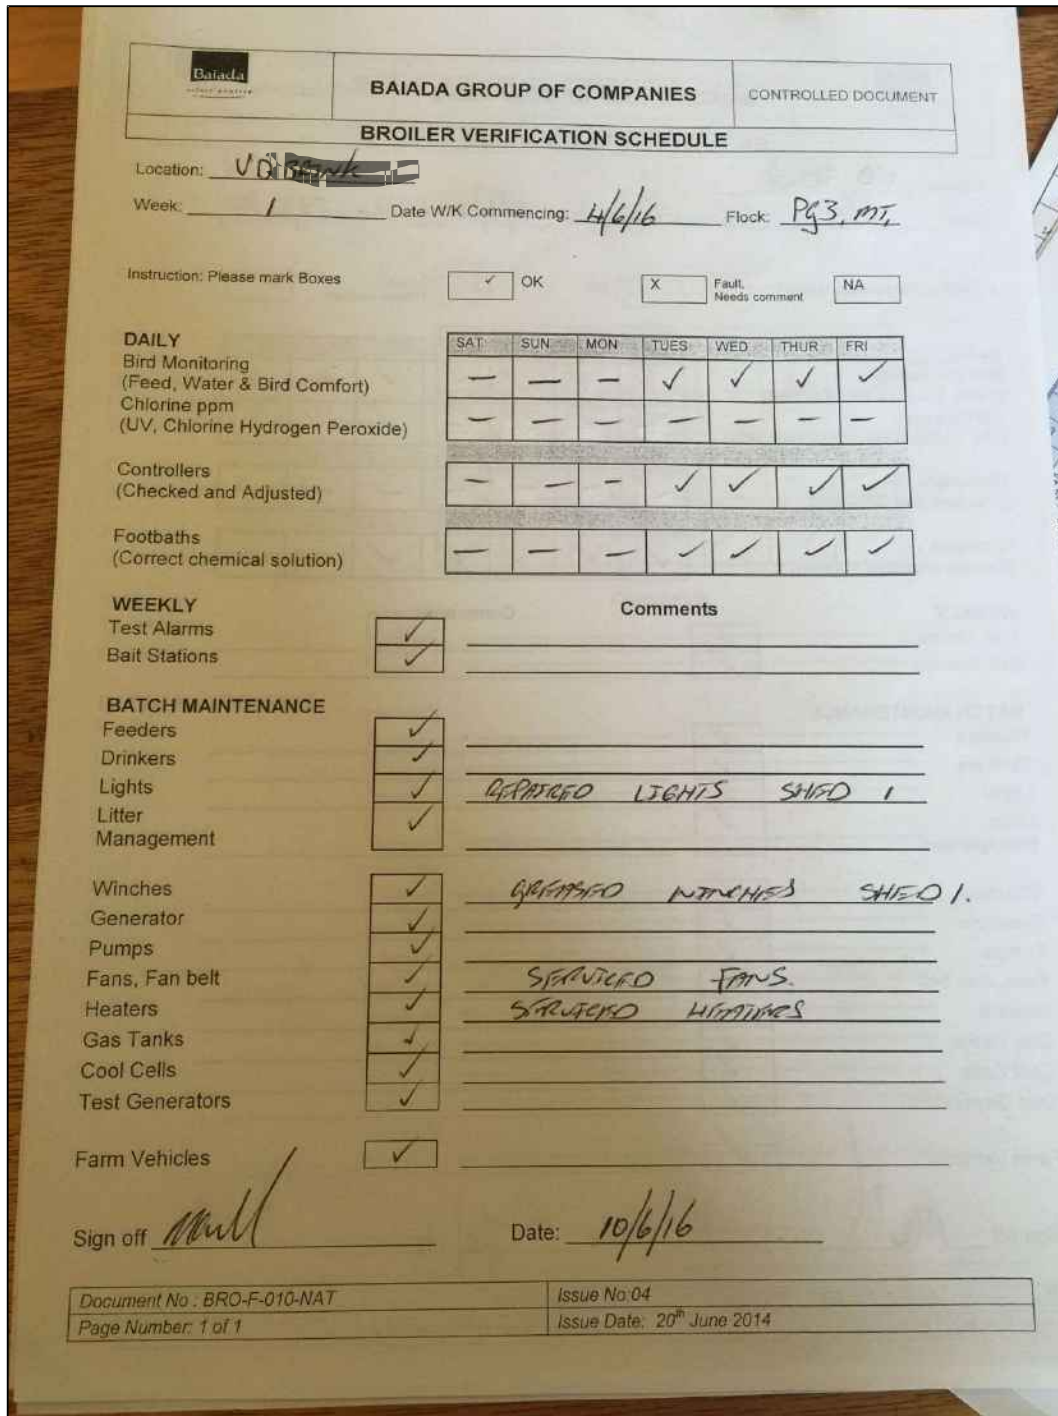 Baiada
BAIADA GROUP OF COMPANIES
CONTROLLED DOCUMENT
BROILER VERIFICATION SCHEDULE
Location:
Week: 1 Date W/K Commencing: 4/6/16 Flock: Pg3, MT,
Instruction: Please mark Boxes ✓ OK X Fault, NA
Needs comment
DAILY SAT SUN MON TUES WED THUR FRI
Bird Monitoring
(Feed, Water & Bird Comfort) — — — ✓ ✓ ✓ ✓
Chlorine ppm
(UV, Chlorine Hydrogen Peroxide) — — — — — — —
Controllers
(Checked and Adjusted) — — — ✓ ✓ ✓ ✓
Footbaths
(Correct chemical solution) — — — ✓ ✓ ✓ ✓
WEEKLY Comments
Test Alarms ✓
Bait Stations ✓
BATCH MAINTENANCE
Feeders ✓
Drinkers ✓
Lights ✓ REPAIRED LIGHTS SHED 1
Litter ✓
Management
Winches ✓ GREASED WINCHES SHED 1.
Generator ✓
Pumps ✓
Fans, Fan belt ✓ SERVICED FANS.
Heaters ✓ SERVICED HEATERS
Gas Tanks ✓
Cool Cells ✓
Test Generators ✓
Farm Vehicles ✓
Sign off Date: 10/6/16
Document No : BRO-F-010-NAT Issue No:04
Page Number: 1 of 1 Issue Date: 20th June 2014